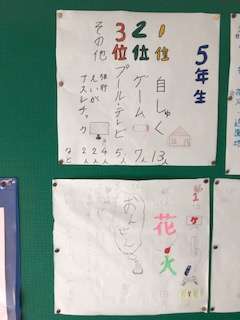 5年生
1位 自しゅく 13人
2位 ゲーム 7人
3位 プール・テレビ 5人
その他
4人
えいが 2人
アスレチック 2人
など
花火
おんせん